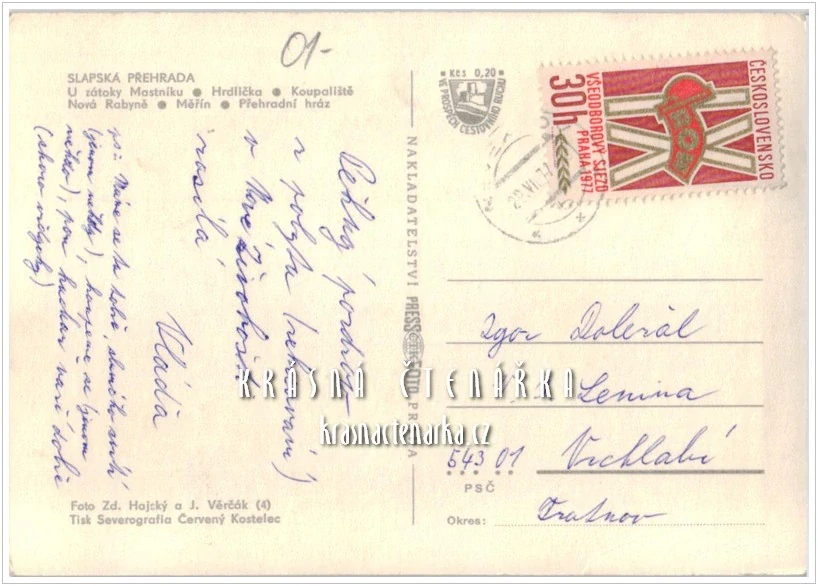 01-
SLAPSKÁ PŘEHRADA
U zátoky Mastníku ● Hrdlička ● Koupaliště
Nová Rabyně ● Měřín ● Přehradní hráz
Kčs 0,20
VE PROSPĚCH CESTOVNÍHO RUCHU
ČESKOSLOVENSKO
VŠEODBOROVÝ SJEZD
PRAHA 1977
30h
ROH
Pěkný pozdrav
z pobytu (rekreování)
v Nové Živohošti
posílá
Vláďa
PS: Máme se tu dobře, sluníčko svítí
(jenom někdy), koupeme se (jenom
někdo), pan kuchař vaří dobře
(skoro vždycky)
NAKLADATELSTVÍ PRESSFOTO PRAHA
KRÁSNÁ ČTENÁŘKA
krasnactenarka.cz
Igor Doležal
Lenina
543 01 Vrchlabí
PSČ
Okres: Trutnov
Foto Zd. Hajský a J. Věrčák (4)
Tisk Severografia Červený Kostelec